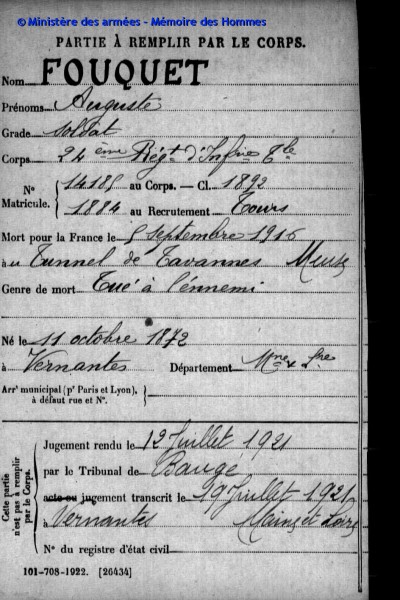 © Ministère des armées - Mémoire des Hommes
PARTIE À REMPLIR PAR LE CORPS.
Nom FOUQUET
Prénoms Auguste
Grade Soldat
Corps 24ème Régt d'Infrie Tle
N° Matricule. { 14185 au Corps. — Cl. 1892
1884 au Recrutement Tours
Mort pour la France le 5 septembre 1916
à au Tunnel de Tavannes Meuse
Genre de mort Tué à l'ennemi
Né le 11 octobre 1872
à Vernantes Département Mne & Lre
Arrt municipal (pr Paris et Lyon),
à défaut rue et N°.
Cette partie n'est pas à remplir par le Corps.
Jugement rendu le 12 Juillet 1921
par le Tribunal de Baugé
acte ou jugement transcrit le 19 Juillet 1921
à Vernantes Maine et Loire
N° du registre d'état civil
101-708-1922. [26434]